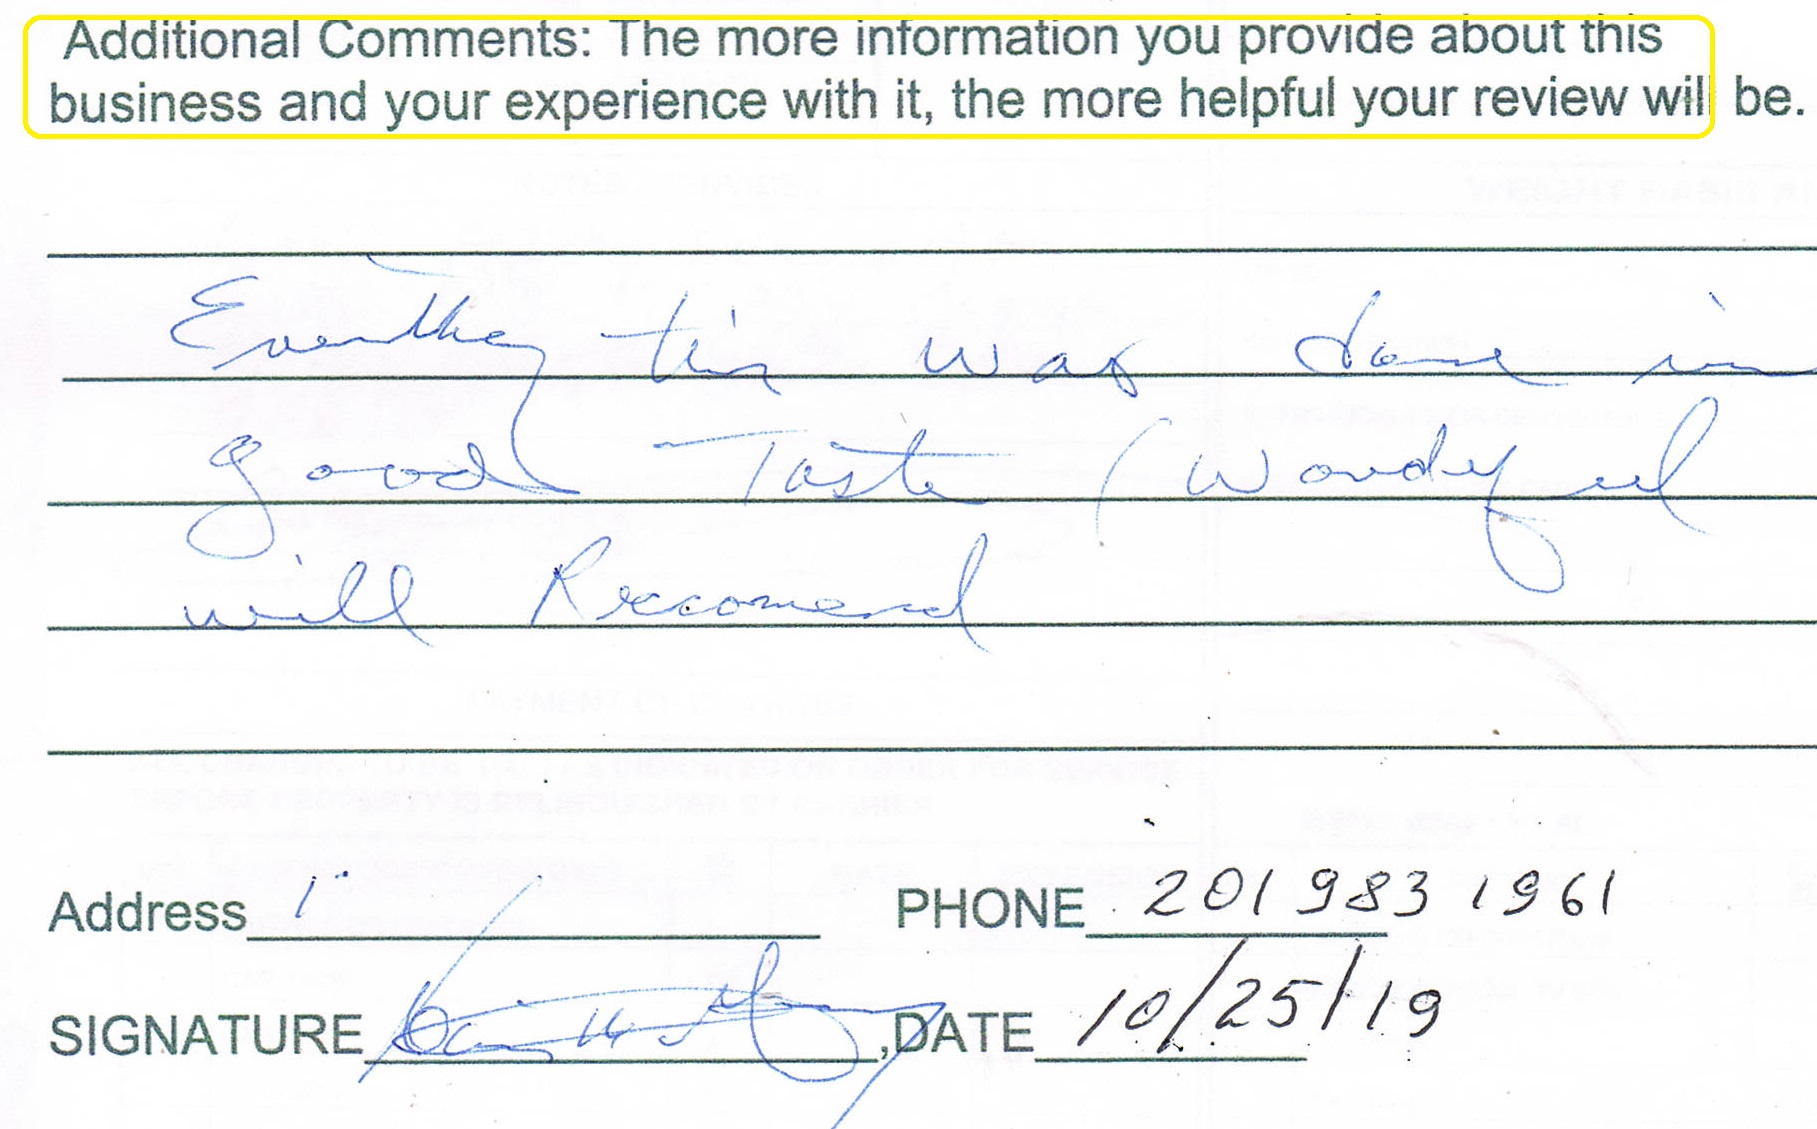 Additional Comments: The more information you provide about this
business and your experience with it, the more helpful your review will be.
was done in
good Taste (Wonderful
will Reccomend
Address PHONE 201 983 1961
SIGNATURE ,DATE 10/25/19